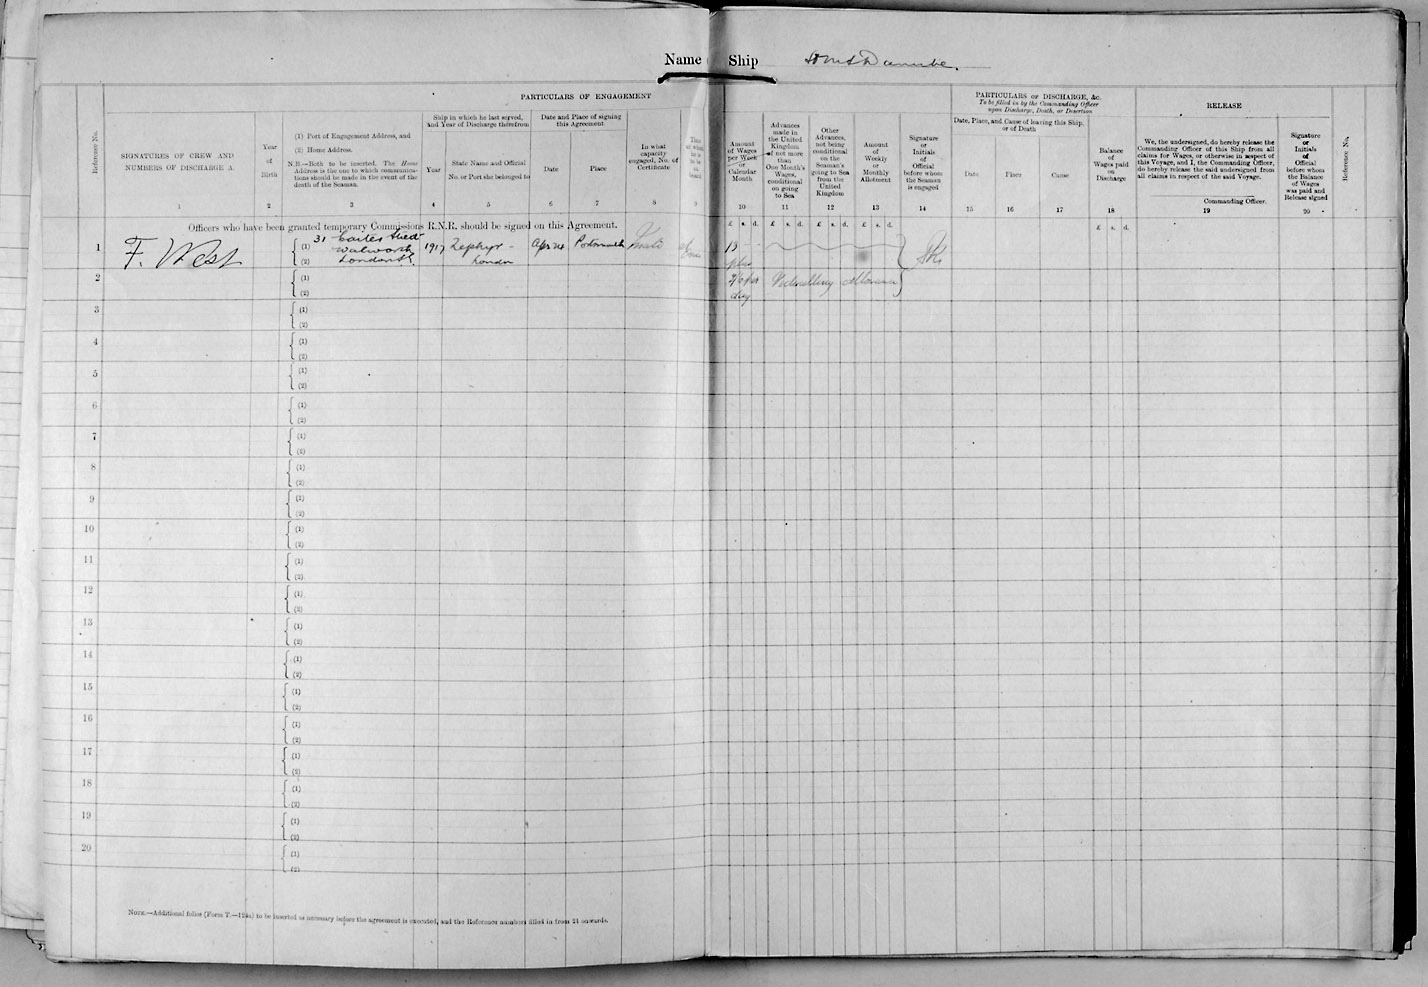 Name
Ship
PARTICULARS OF ENGAGEMENT
Reference No.
SIGNATURES OF CREW AND
NUMBERS OF DISCHARGE A.
1
Year
of
Birth
2
(1) Port of Engagement Address, and
(2) Home Address.
N.B.—Both to be inserted. The Home
Address is the one to which communica-
tions should be made in the event of the
death of the Seaman.
3
Ship in which he last served,
and Year of Discharge therefrom
Year
4
State Name and Official
No. or Port she belonged to
5
Date and Place of signing
this Agreement
Date
6
Place
7
In what
capacity
engaged, No. of
Certificate
8
9
Amount
of Wages
per Week
or
Calendar
Month
10
Advances
made in
the United
Kingdom
of not more
than
One Month's
Wages,
conditional
on going
to Sea
11
Other
Advances,
not being
conditional
on the
Seaman's
going to Sea
from the
United
Kingdom
12
Amount
of
Weekly
or
Monthly
Allotment
13
Signature
or
Initials
of
Official
before whom
the Seaman
is engaged
14
PARTICULARS OF DISCHARGE, &c.
To be filled in by the Commanding Officer
upon Discharge, Death, or Desertion
Date, Place, and Cause of leaving this Ship,
or of Death
Date
15
Place
16
Cause
17
Balance
of
Wages paid
on
Discharge
18
RELEASE
We, the undersigned, do hereby release the
Commanding Officer of this Ship from all
claims for Wages, or otherwise in respect of
this Voyage, and I, the Commanding Officer,
do hereby release the said undersigned from
all claims in respect of the said Voyage.
Commanding Officer.
19
Signature
or
Initials
of
Official
before whom
the Balance
of Wages
was paid and
Release signed
20
Reference No.
£ s. d. £ s. d. £ s. d. £ s. d. £ s. d.
Officers who have been granted temporary Commissions R.N.R. should be signed on this Agreement.
1 F. West (1) 31 Street 1917 Zephyr - Apr 24 Portsmouth 13
Walworth
(2) London London plus
2 (1) 2/6 per Victualling Allowance
(2) day
3 (1)
(2)
4 (1)
(2)
5 (1)
(2)
6 (1)
(2)
7 (1)
(2)
8 (1)
(2)
9 (1)
(2)
10 (1)
(2)
11 (1)
(2)
12 (1)
(2)
13 (1)
(2)
14 (1)
(2)
15 (1)
(2)
16 (1)
(2)
17 (1)
(2)
18 (1)
(2)
19 (1)
(2)
20 (1)
(2)
NOTE.—Additional folios (Form T.—124a) to be inserted as necessary before the agreement is executed, and the Reference numbers filled in from 21 onwards.